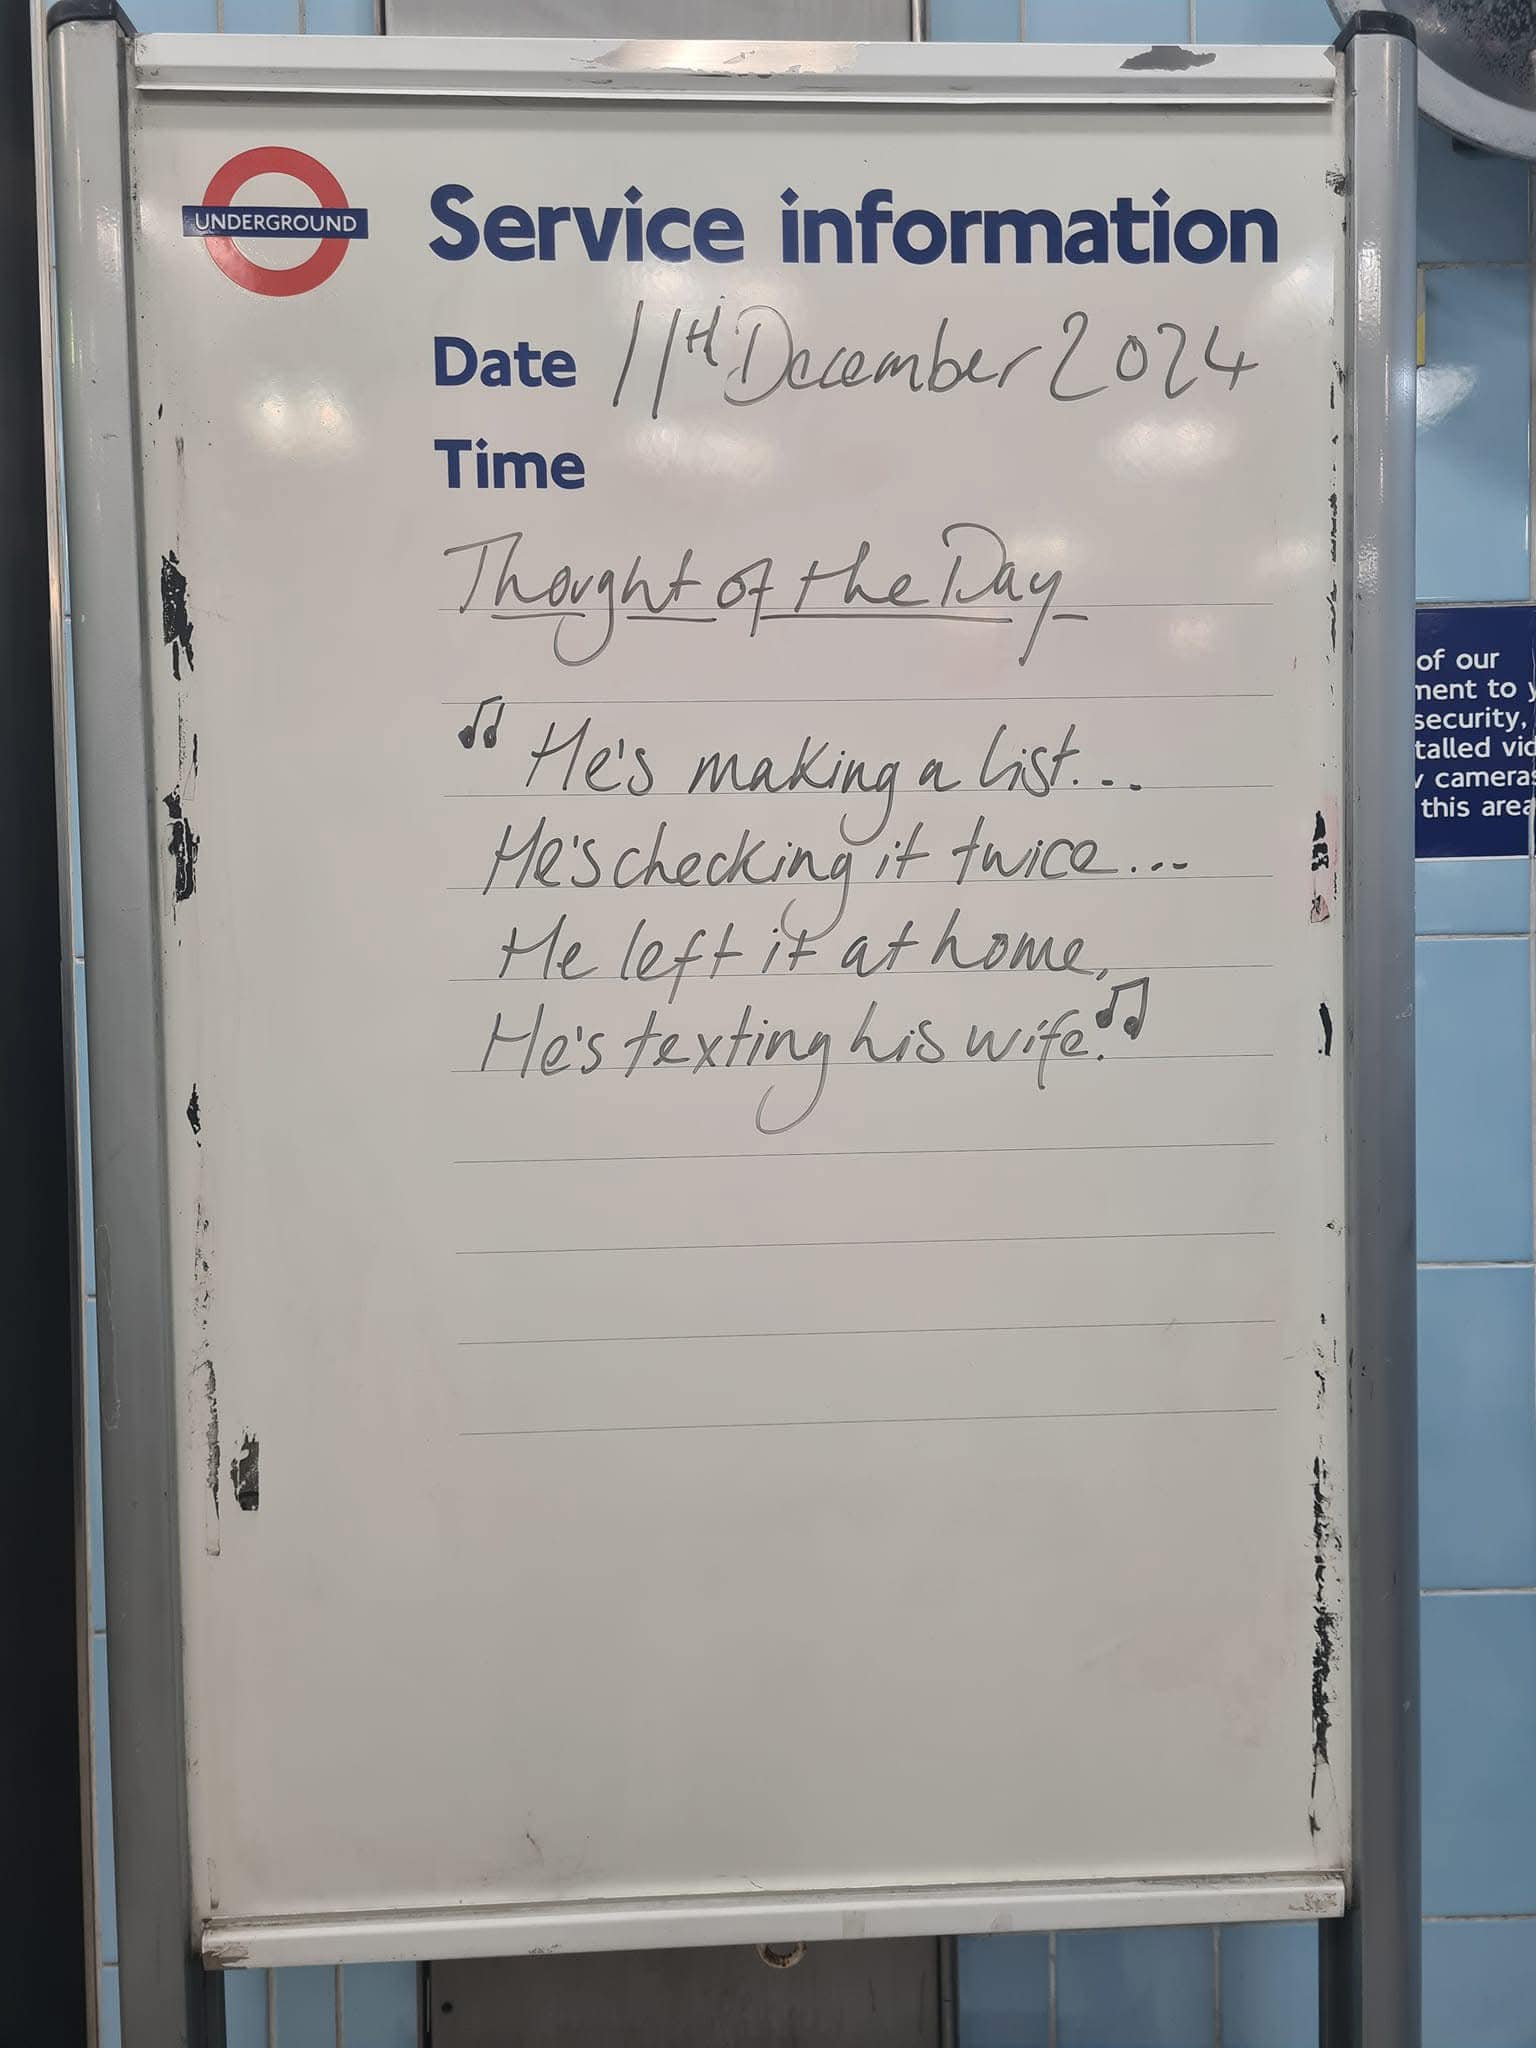 UNDERGROUND
Service information
Date 11th December 2024
Time
Thought of the Day
♫ He's making a list...
He's checking it twice...
He left it at home,
He's texting his wife.♫
of our
ment to y
security,
talled vid
cameras
this area